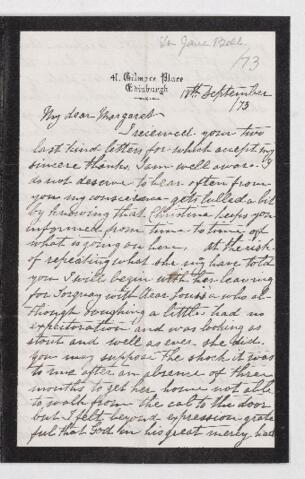 Jane Bell
/73
41, Gilmore Place
Edinburgh
17th September
/73
My dear Margaret
I received your two
last kind letters for which accept my
sincere thanks. I am well aware I
do not deserve to hear often from
you my conscience gets lulled a bit
by knowing that Christina keeps you
informed from time to time of
what is going on here. At the risk
of repeating what she may have told
you I will begin with her leaving
for Torquay with dear Louisa who al-
though coughing a little had no
expectoration and was looking as
stout and well as ever she did.
You may suppose the shock it was
to me after an absence of three
months to get her home not able
to walk from the cab to the door
but I felt beyond expression grate
ful that God in his great mercy had